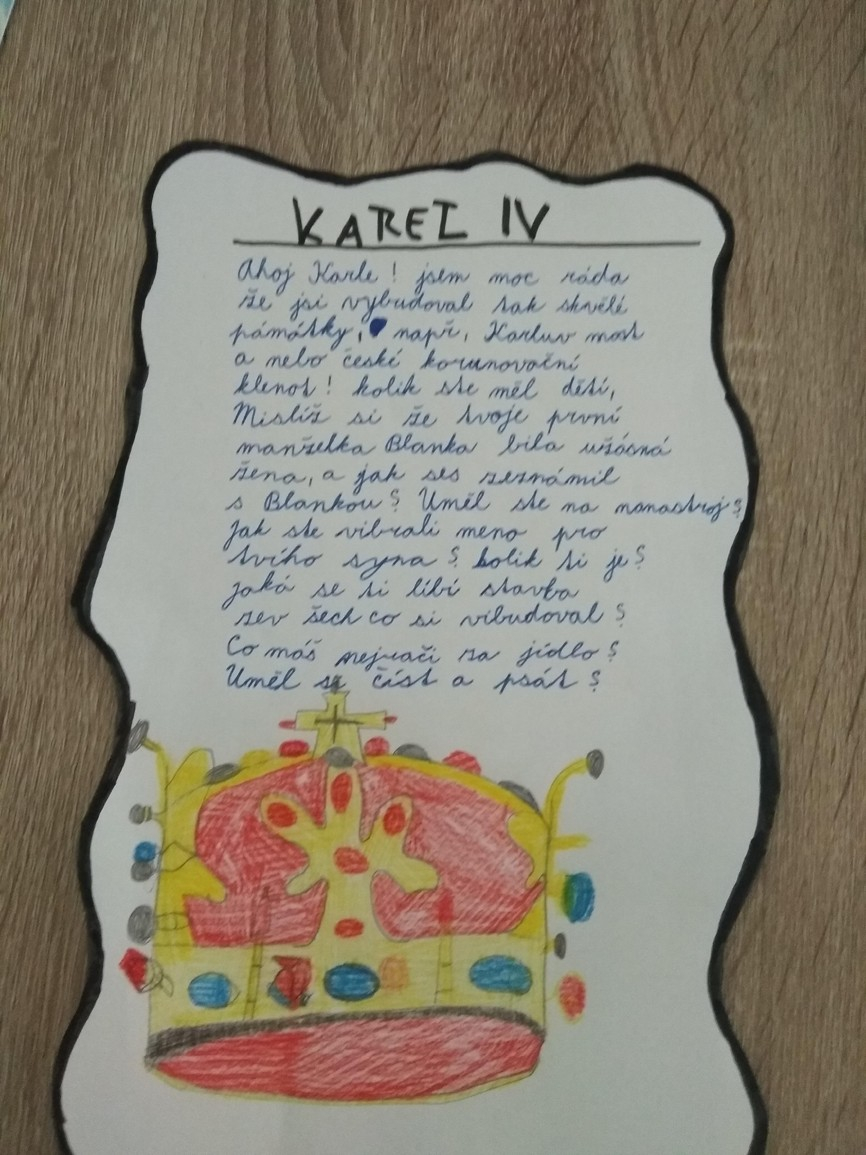 KAREL IV
Ahoj Karle! jsem moc ráda
že jsi vybudoval tak skvělé
pámátky, např, Karluv most
a nebo české korunovační
klenot! kolik ste měl dětí,
Mislíž si že tvoje první
manželka Blanka bila užásná
žena, a jak ses seznámil
s Blankou? Uměl ste na nanastroj?
Jak ste vibrali meno pro
tvího syna? kolik ti je?
jaká se ti líbí stavba
zev šech co si vibudoval?
Co máš nejrači za jídlo?
Uměl si číst a psát?